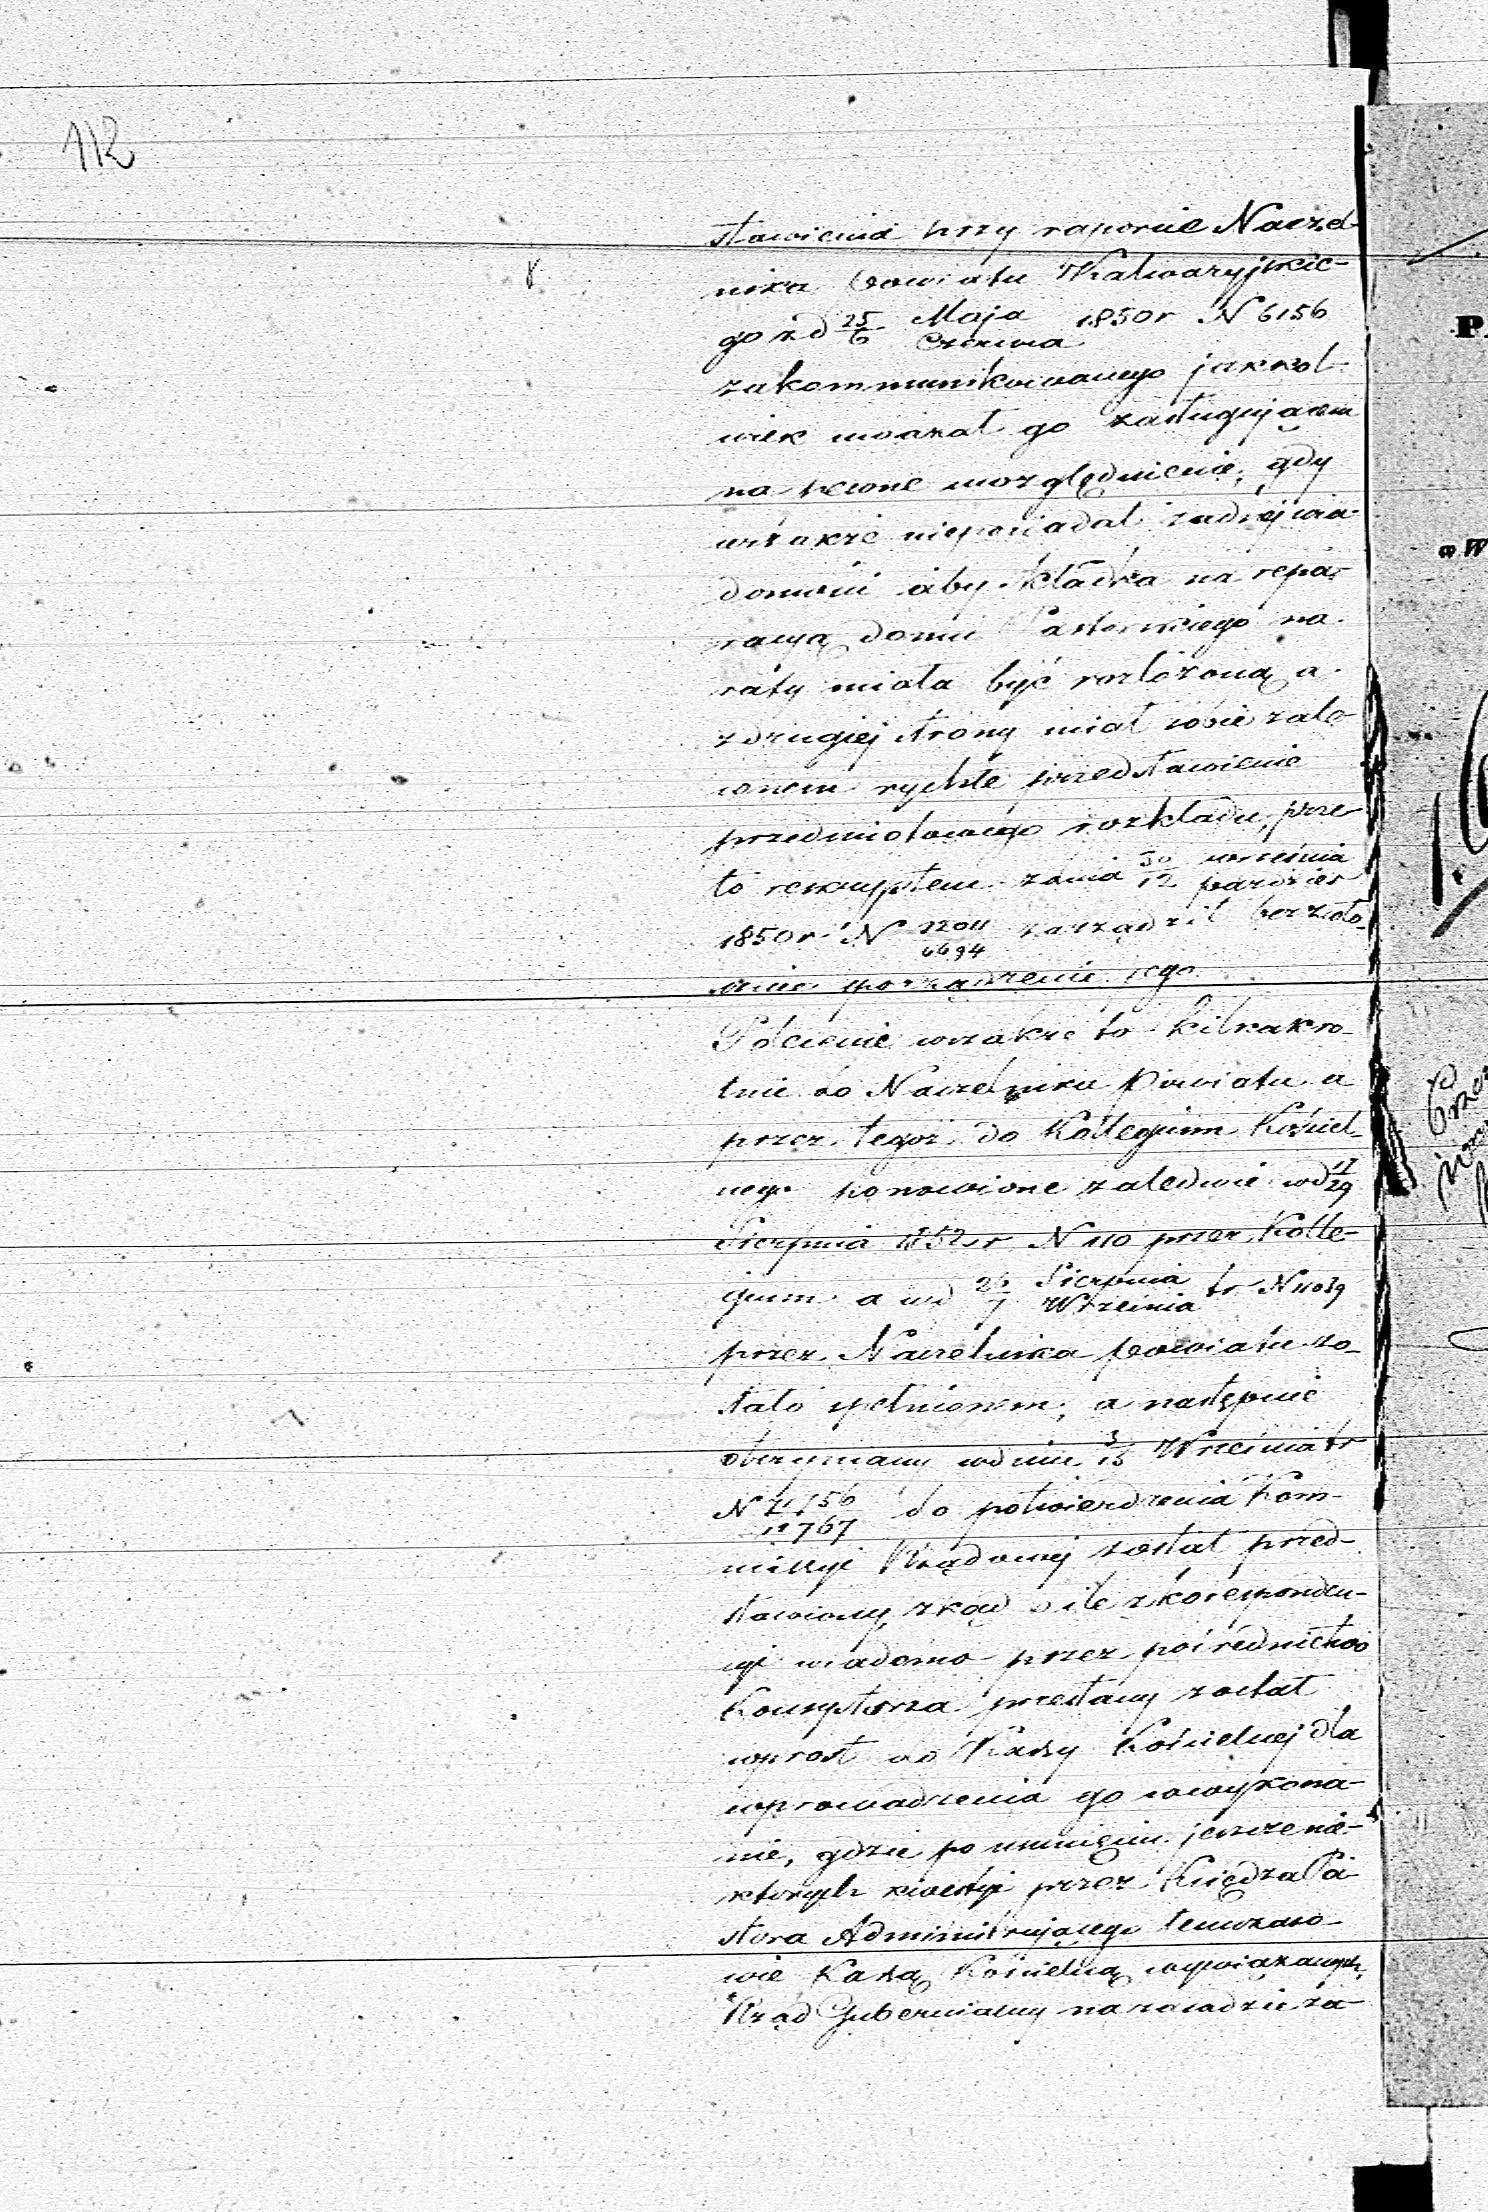 112
stawienia przy raporcie Naczel-
nika Powiatu Kalwaryjskie-
go z d 25/6 Maja/Czerwca 1850r N 6156
zakommunikowanego jakkol-
wiek uważał go zasługującem
na pewne uwzględnienie, gdy
wszakże nieposiadał żadnej wia-
domości aby składka na repa-
racyą domu Pastorskiego na
raty miała być rozłożoną a
z drugiej strony miał sobie zale-
conem rychłe przedstawienie
przedmiotowego rozkładu, prze-
to reskryptem z dnia 30/12 września/paździer
1850r N 22011/6694 zarządził bezzwło-
cznie sporządzenie jego
Polecenie wszakże to kilkakro-
tnie do Naczelnika Powiatu a
przez tegoż do Kollegium Kościel-
nego ponowione zaledwie w d 17/29
Sierpnia 1852 r N 110 przez Kolle-
gium a w d 26/7 Sierpnia/Września tr N 11039
przez Naczelnika powiatu zo-
stało spełnionem, a następnie
otrzymany w dniu 3/15 Września tr
N 767 do potwierdzenia Kom-
missyi Rządowej został przed-
stawiony, zkąd o ile z koresponden-
cyi wiadomo przez pośrednictwo
Konsystorza przesłany został
wprost do Kassy Kościelnej dla
wprowadzenia go w wykona-
nie, gdzie po usunięciu jeszcze nie-
których kwestyi przez Księdza Pa-
stora Administrującego tymczaso-
wie Kassą Kościelną wywiązanych,
Rząd Gubernialny na zasadzie za-